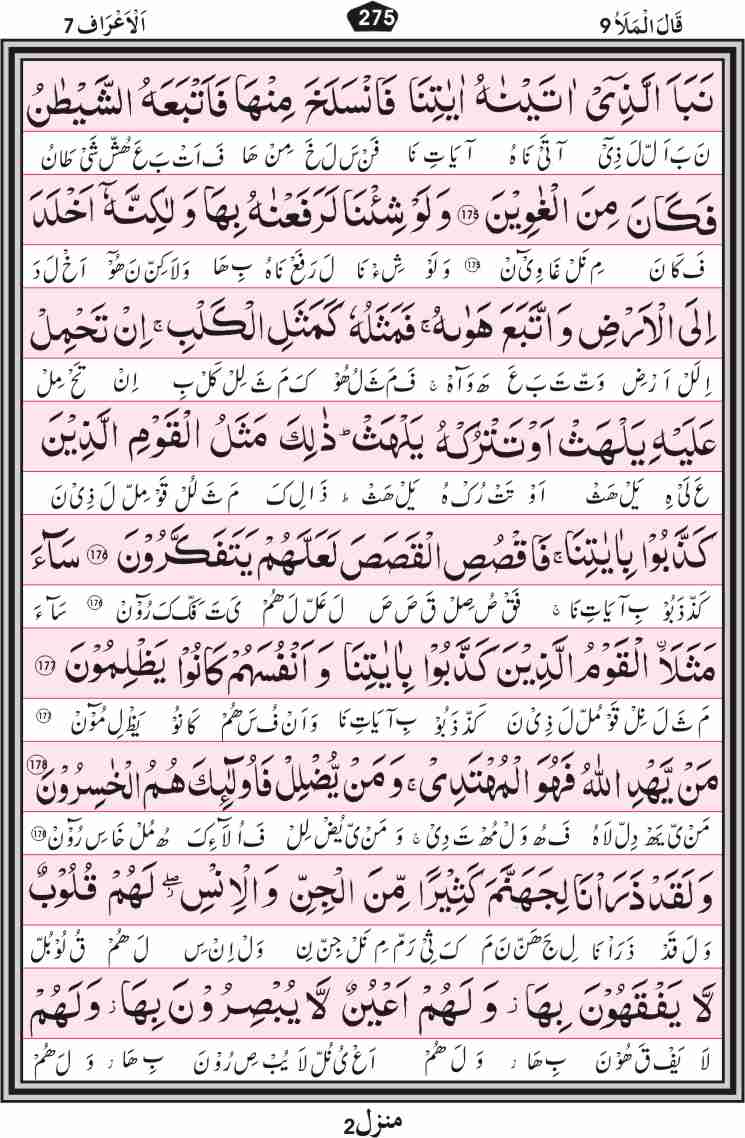 قَالَ الۡمَلَاُ 9 275 اَلۡاَعۡرَاف 7
نَبَاَ الَّذِىۡۤ اٰتَيۡنٰهُ اٰيٰتِنَا فَانْسَلَخَ مِنۡهَا فَاَتۡبَعَهُ الشَّيۡطٰنُ
نَ بَ اَلّ لَ ذِىۡٓ آ تَىۡ نَا هُ آ يَا تِ نَا فَنۡ سَ لَ خَ مِنۡ هَا فَ اَتۡ بَ عَ هُشّ شَىۡ طَانُ
فَكَانَ مِنَ الۡغٰوِيۡنَ ‏175 وَلَوۡ شِئۡنَا لَرَفَعۡنٰهُ بِهَا وَلٰكِنَّهٗۤ اَخۡلَدَ
فَ كَا نَ مِ نَلۡ غَا وِىۡٓنۡ 175 وَ لَوۡ شِىءۡ نَا لَ رَ فَعۡ نَا هُ بِ هَا وَلَا كِنّ نَ هُوۡٓ اَخۡ لَ دَ
اِلَى الۡاَرۡضِ وَاتَّبَعَ هَوٰٮهُ‌ ۚ فَمَثَلُهٗ كَمَثَلِ الۡـكَلۡبِ‌ ۚ اِنۡ تَحۡمِلۡ
اِ لَلۡ اَرۡ ضِ وَتّ تَ بَ عَ هَ وَ آهُ ۚ فَ مَ ثَ لُ هُوۡ كَ مَ ثَ لِلۡ كَلۡ بِ ۚ اِنۡ تَحۡ مِلۡ
عَلَيۡهِ يَلۡهَثۡ اَوۡ تَتۡرُكۡهُ يَلۡهَثۡ‌ ؕ ذٰ لِكَ مَثَلُ الۡقَوۡمِ الَّذِيۡنَ
عَ لَىۡ هِ يَلۡ هَثۡ اَوۡ تَتۡ رُكۡ هُ يَلۡ هَثۡ ؕ ذَا لِ كَ مَ ثَ لُلۡ قَوۡ مِلّ لَ ذِىۡ نَ
كَذَّبُوۡا بِاٰيٰتِنَا‌ ۚ فَاقۡصُصِ الۡقَصَصَ لَعَلَّهُمۡ يَتَفَكَّرُوۡنَ‏ 176 سَآءَ
كَذّ ذَ بُوۡ بِ آ يَا تِ نَا ۚ فَقۡ صُ صِلۡ قَ صَ صَ لَ عَلّ لَ هُمۡ ىَ تَ فَكّ كَ رُوۡٓنۡ 176 سَآ ءَ
مَثَلَا ۨ الۡقَوۡمُ الَّذِيۡنَ كَذَّبُوۡا بِاٰيٰتِنَا وَاَنۡفُسَهُمۡ كَانُوۡا يَظۡلِمُوۡنَ‏ 177
مَ ثَ لَ نِلۡ قَوۡ مُلّ لَ ذِىۡ نَ كَذّ ذَ بُوۡ بِ آ يَا تِ نَا وَ اَنۡ فُ سَ هُمۡ كَا نُوۡ يَظۡ لِ مُوۡٓنۡ 177
مَنۡ يَّهۡدِ اللّٰهُ فَهُوَ الۡمُهۡتَدِىۡ‌ ۚ وَمَنۡ يُّضۡلِلۡ فَاُولٰۤٮِٕكَ هُمُ الۡخٰسِرُوۡنَ‏ 178
مَنۡ ىّ يَهۡ دِلّ لَا هُ فَ هُ وَلۡ مُهۡ تَ دِىۡ ۚ وَ مَنۡ ىّ يُضۡ لِلۡ فَ اُ لَآ ءِ كَ هُ مُلۡ خَا سِ رُوۡٓنۡ 178
وَلَـقَدۡ ذَرَاۡنَا لِجَهَنَّمَ كَثِيۡرًا مِّنَ الۡجِنِّ وَالۡاِنۡسِ‌ ۖ  لَهُمۡ قُلُوۡبٌ
وَ لَ قَدۡ ذَ رَاۡ نَا لِ جَ هَنّ نَ مَ كَ ثِىۡ رَمّ مِ نَلۡ جِنّ نِ وَلۡ اِنۡ سِ لَ هُمۡ قُ لُوۡ بُلّ
لَّا يَفۡقَهُوۡنَ بِهَا وَلَهُمۡ اَعۡيُنٌ لَّا يُبۡصِرُوۡنَ بِهَا وَلَهُمۡ
لَا يَفۡ قَ هُوۡنَ بِ هَا وَ لَ هُمۡ اَعۡ ىُ نُلّ لَا يُبۡ صِ رُوۡ نَ بِ هَا وَ لَ هُمۡ
منزل 2